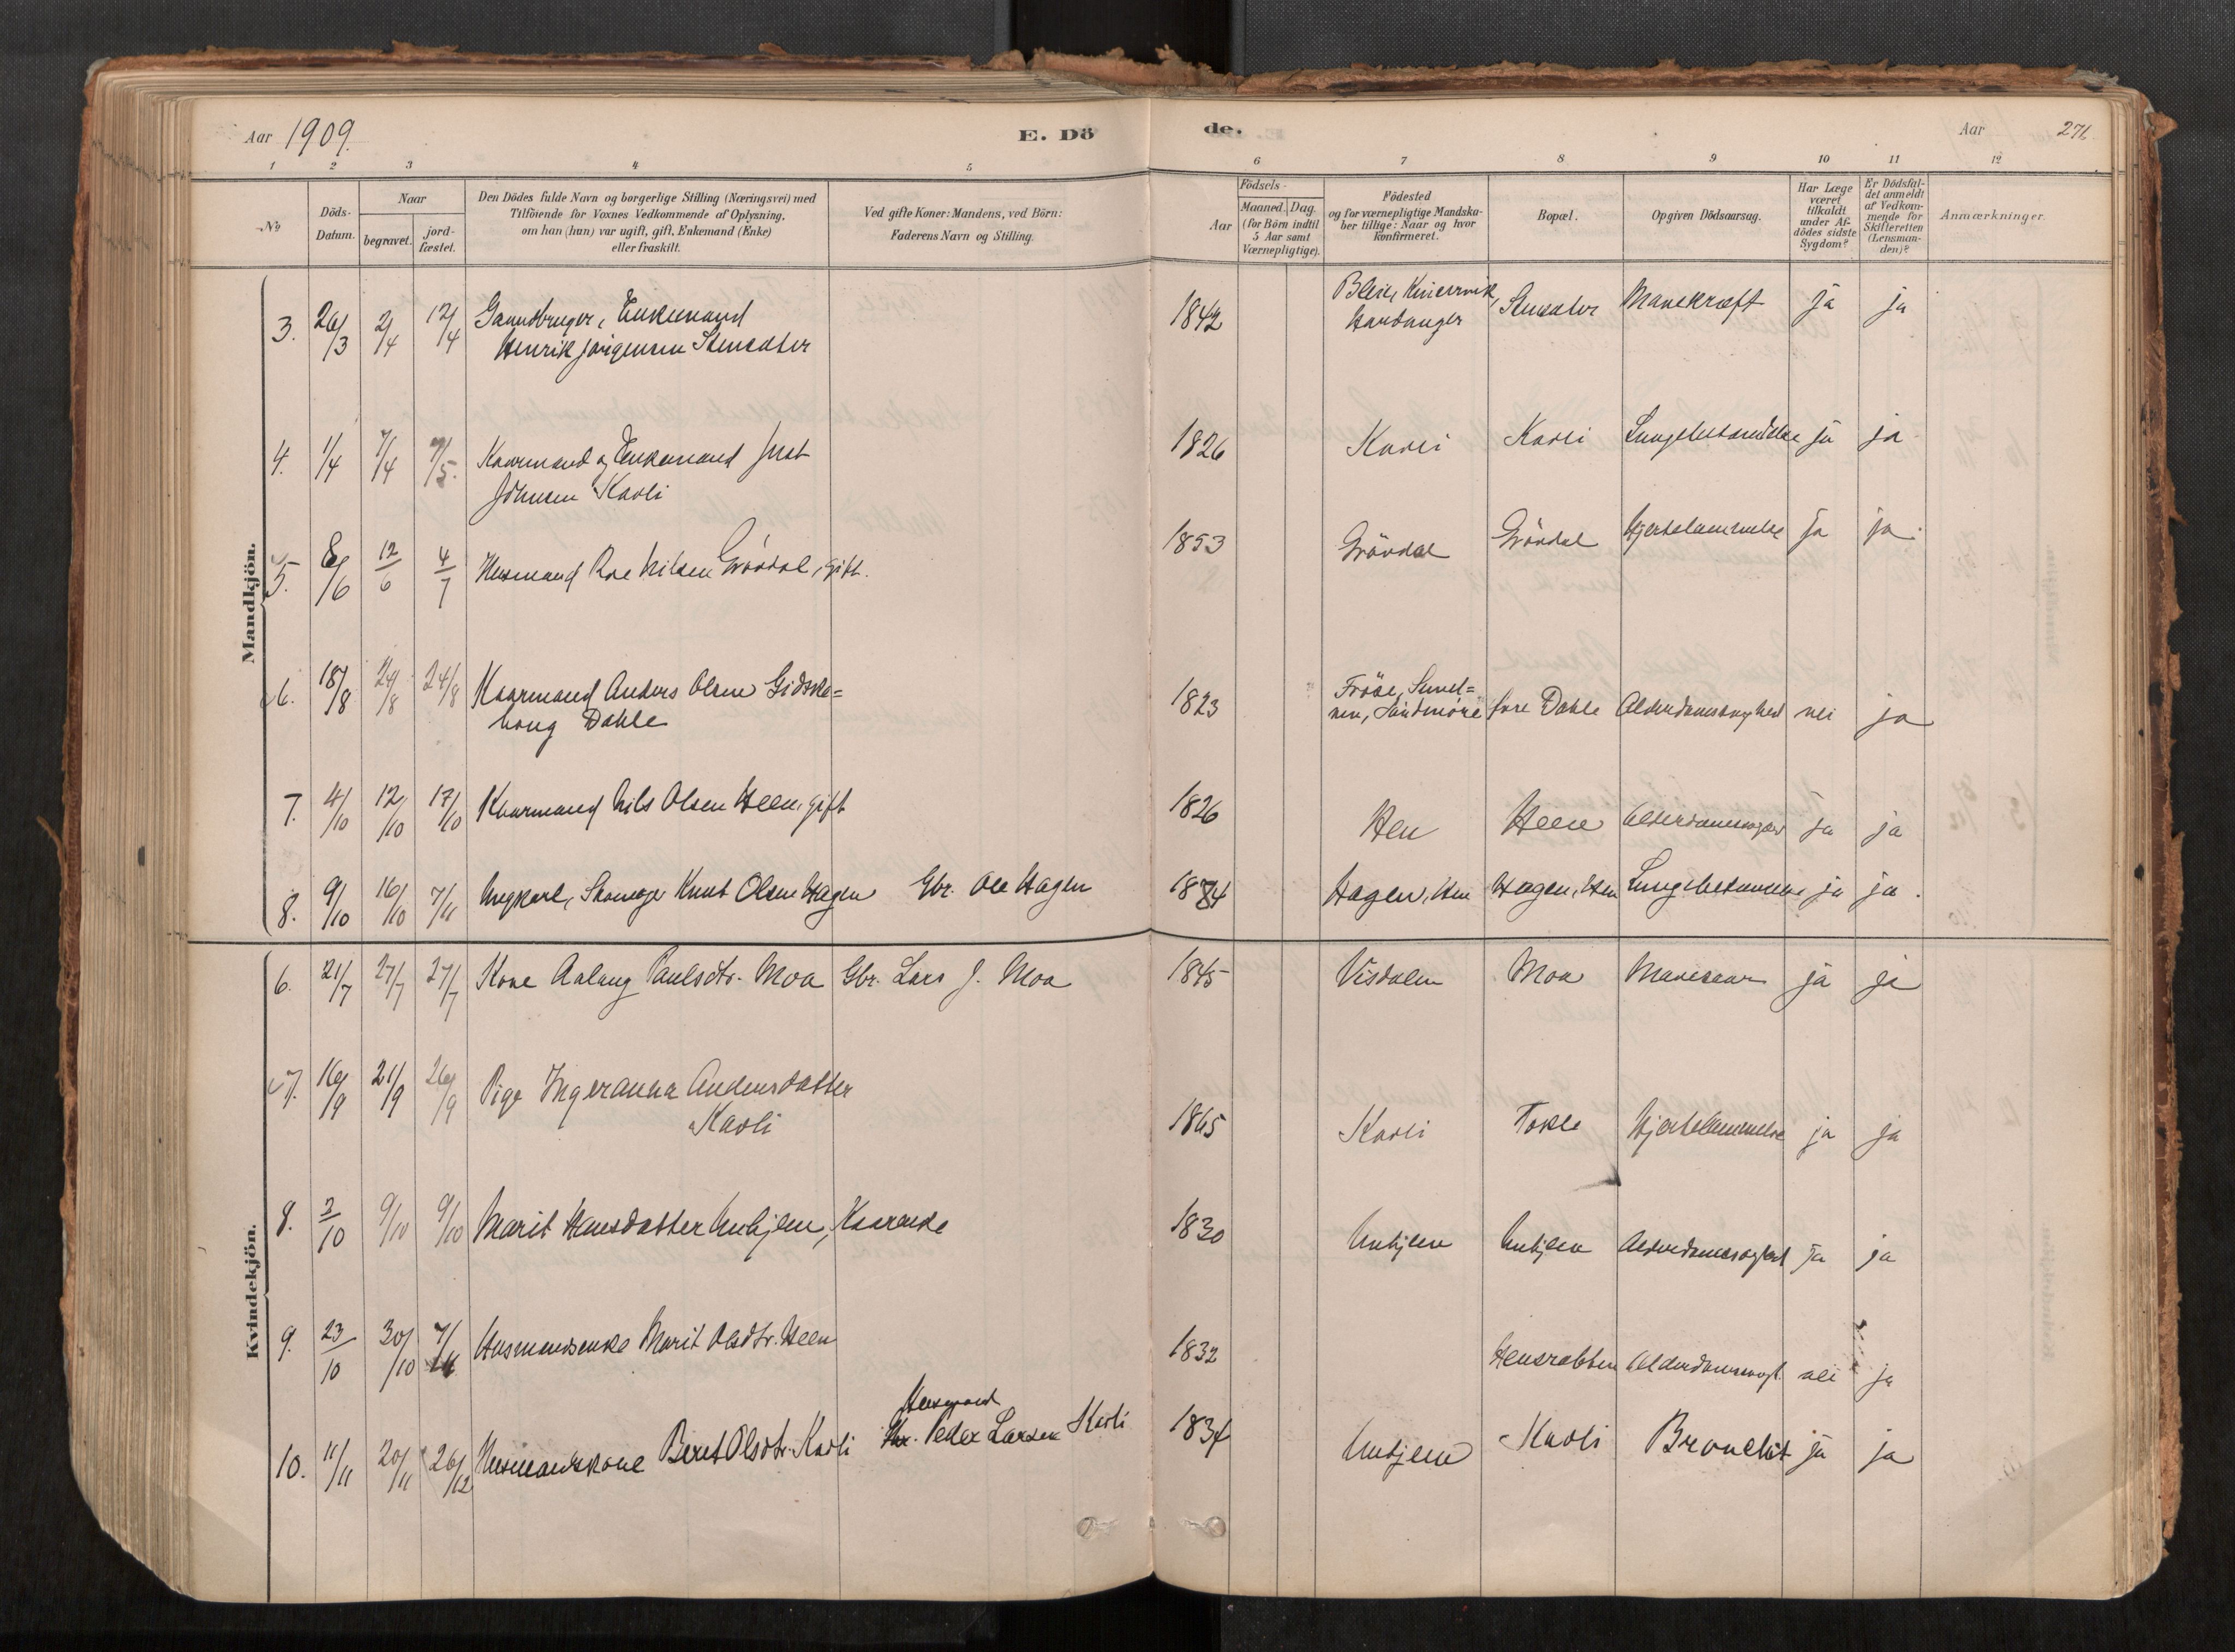 Aar 1909.
E. Dö
de.
Aar
271.
1 2 3 4 5 6 7 8 9 10 11 12
No
Döds-
Datum.
Naar
begravet.
jord-
fæstet.
Den Dödes fulde Navn og borgerlige Stilling (Næringsvei) med
Tilföiende for Voxnes Vedkommende af Oplysning,
om han (hun) var ugift, gift, Enkemand (Enke)
eller fraskilt.
Ved gifte Koner: Mandens, ved Börn:
Faderens Navn og Stilling.
Födsels-
Aar
Maaned. Dag.
(for Börn indtil
5 Aar samt
Værnepligtige).
Födested
og for værnepligtige Mandska-
ber tillige: Naar og hvor
konfirmeret.
Bopæl.
Opgiven Dödsaarsag.
Har Læge
været
tilkaldt
under Af-
dödes sidste
Sygdom?
Er Dödsfal-
det anmeldt
af Vedkom-
mende for
Skifteretten
(Lensman-
den)?
Anmærkninger.
Mandkjön.
3. 26/3 2/4 12/4 Gaardbruger, Enkemand
Henrik Jörgensen Stensæter
1842 Hardanger Stensæter Mavekræft ja ja
4. 1/4 7/4 7/5. Kaarmand og Enkemand
Johnsen Kavli
1826 Kavli Kavli Lungebetændelse ja ja
5. 8/6 12/6 4/7 Husmand Roe Nilsen Grövdal, gift.
1853 Grövdal Grövdal Hjertelammelse ja ja.
6. 18/8 24/8 24/8 Kaarmand Anders Olsen Gidske=
houg Dahle
1823 Söndmöre Dahle Alderdomssvaghed nei ja
7. 4/10 12/10 17/10 Kaarmand Nils Olsen Heen, gift
1826 Hen Heen Alderdomssvaghed ja ja
8. 9/10 16/10 7/11 Ungkarl, Skomager Knut Olsen Hagen Gbr. Ole Hagen
1874 Hagen, Hen Hagen, Hen Lungebetændelse ja ja.
Kvindekjön.
6. 21/7 27/7 27/7 Kone Aalaug Paulsdtr. Moa Gbr. Lars J. Moa
1845 Visdalen Moa Mavesaar ja ja
7. 16/9 21/9 26/9 Pige Ingeranna Andersdatter
Kavli
1865 Kavli Tokle Hjertelammelse ja ja
8. 2/10 9/10 9/10 Marit Hansdatter Unhjem, Kaarenke
1830 Unhjem Unhjem Alderdomssvaghed ja ja
9. 23/10 30/10 7/11 Husmandsenke Marit Olsdtr. Heen
1832 Hensrabben Alderdomssvagh. nei ja
Husmand
10. 11/11 20/11 26/12 Husmandskone Beret Olsdtr. Kavli Peder Larsen Kavli
1834 Unhjem Kavli Bronchit ja ja